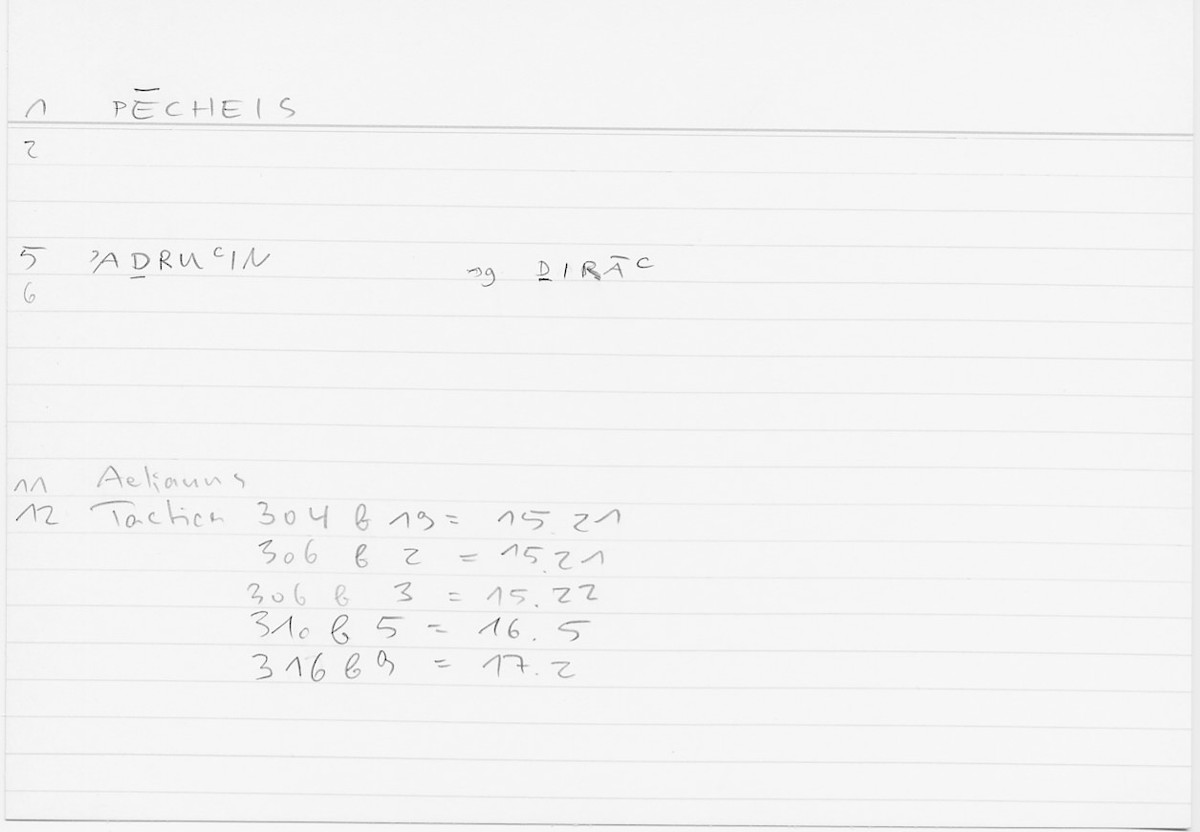 1 PĒCHEIS
2
5 ʾAḎRUʿIN sg ḎIRĀʿ
6
11 Aelianus
12 Tactica 304 b 19 = 15.21
306 b 2 = 15.21
306 b 3 = 15.22
310 b 5 = 16.5
316 b 9 = 17.2